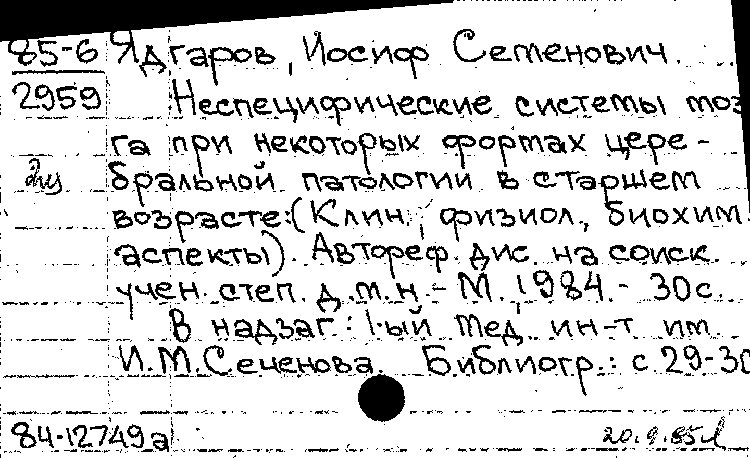 85-6 Ядгаров, Иосиф Семенович.
2959 Неспецифические системы моз
га при некоторых формах цере-
бральной патологии в старшем
возрасте:(Клин., физиол., биохим.
аспекты). Автореф. дис. на соиск.
учен. степ. д.м.н. - М., 1984. - 30с.
В надзаг.: 1-ый мед. ин-т им.
И.М.Сеченова. Библиогр.: с 29-30
84-12749а 20.9.85